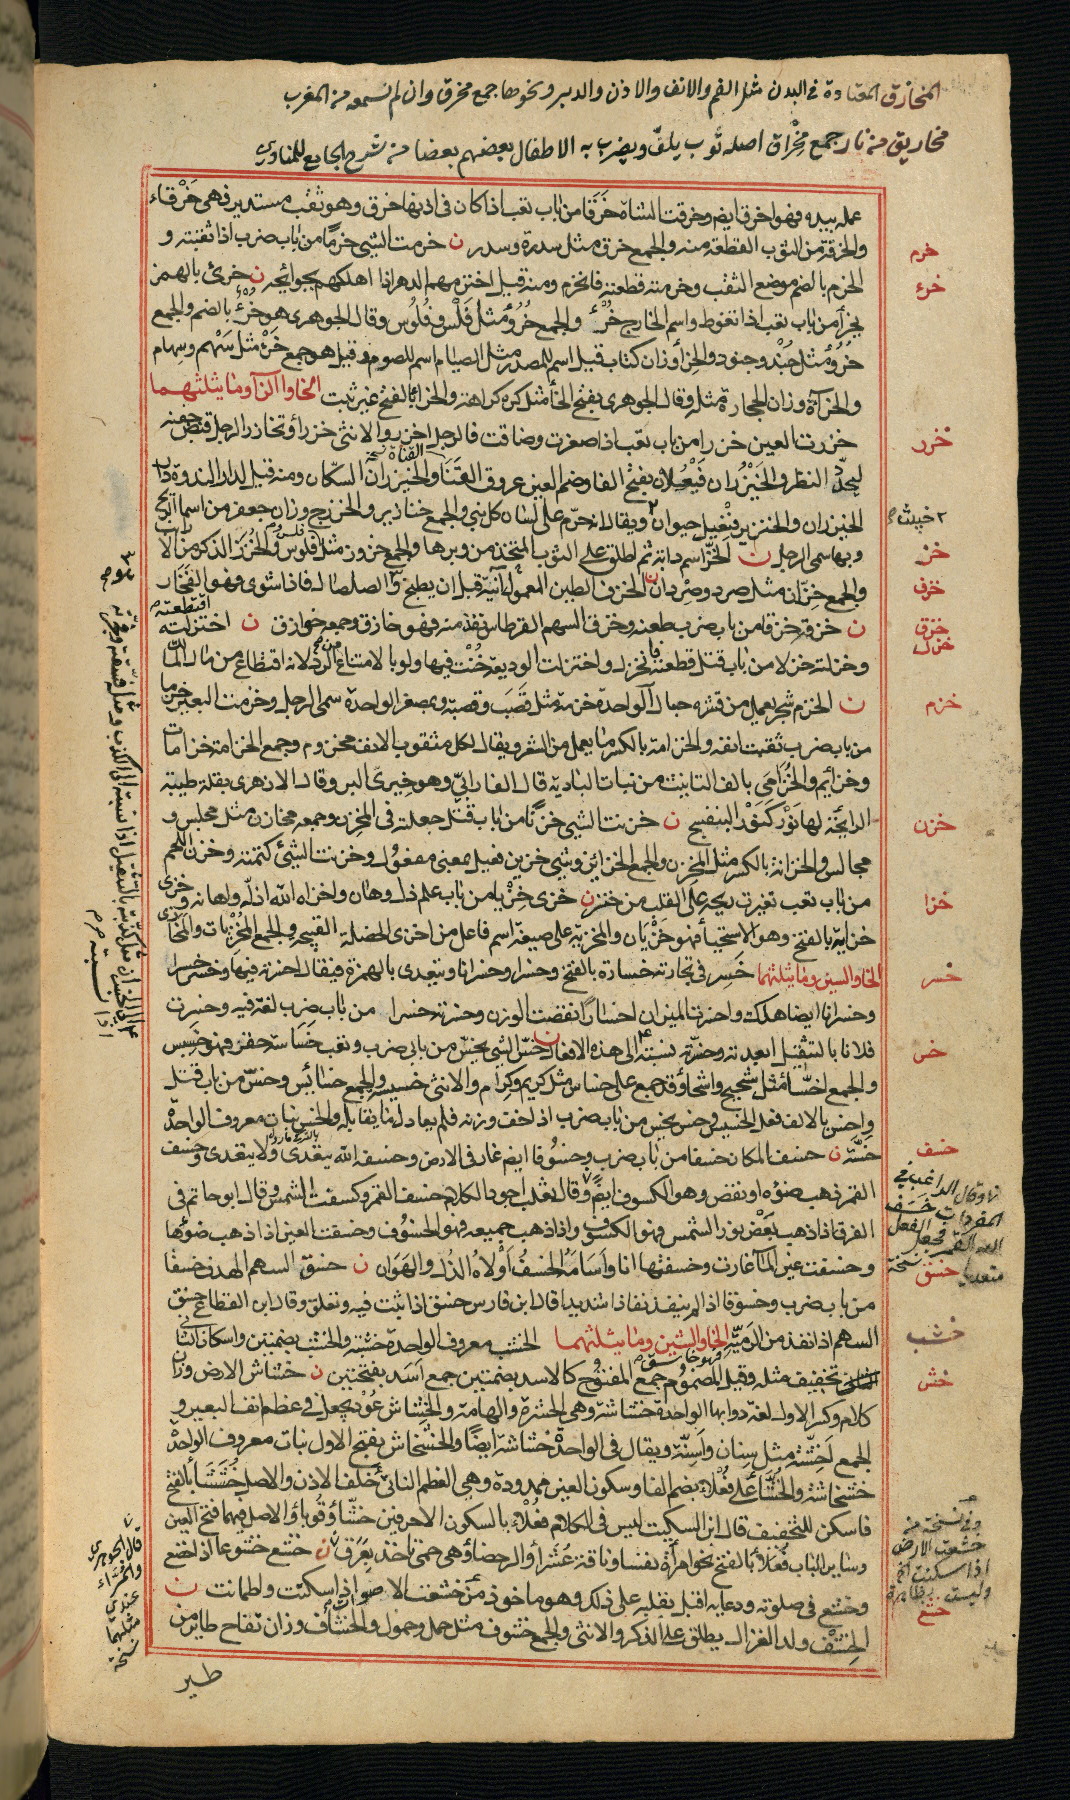 المخارق المعتادة في البدن مثل الفم والانف والاذن والدبر ونحوها جمع مخرق وان لم نسمعه من المغرب
مخاريق من نار جمع مخراق اصله ثوب يلف ويضرب به الاطفال بعضهم بعضا من شرح الجامع للمناوي
عمله بيده فهو اخرق ايضا وخرقت الشاة خرقا من باب تعب اذا كان في اذنها خرق وهو ثقب مستدير فهي خرقاء
والخرقة من الثوب القطعة منه والجمع خرق مثل سدرة وسدر ن خرمت الشيء خرما من باب ضرب اذا ثقبته و
خرم
الخرم بالضم موضع الثقب وخرمته قطعته فانخرم ومنه قيل اخترمهم الدهر اذا اهلكهم بجوائحه ن خرئ بالهمز
خرء
يخرأ من باب تعب اذا تغوط واسم الخارج خرء والجمع خروء مثل فلس وفلوس وقال الجوهري هو خرء بالضم والجمع
خروء مثل جند وجنود والخراء وزان كتاب قيل اسم للمصدر مثل الصيام اسم للصوم وقيل هو جمع خرء مثل سهم وسهام
والخراءة وزان الحجارة مثله وقال الجوهري بفتح الخاء مثل كره كراهة والخراء بالفتح غير ثبت الخاء والزاء وما يثلثهما
خزرت العين خزرا من باب تعب اذا صغرت وضاقت فالرجل اخزر والانثى خزراء وتخازر الرجل قبض جفنه
خزر
ليحدد النظر والخيزران فيعلان بفتح الفاء وضم العين عروق القنا والخيزران السكان ومنه قيل لدار الندوة دار
الخيزران والخنزير فنعيل حيوان خبيث ويقال انه حرم على لسان كل نبي والجمع خنازير والخزرج وزان جعفر من اسماء الريح
وبها سمي الرجل ن الخز اسم دابة ثم اطلق على الثوب المتخذ من وبرها والجمع خزوز مثل فلوس والخزز الذكر من الارانب
خز
والجمع خزان مثل صرد وصردان ن الخزف الطين المعمول آنية قبل ان يطبخ وهو الصلصال فاذا شوي فهو الفخار
خزف
ن خزقه خزقا من باب ضرب طعنه وخزق السهم القرطاس نفذ منه فهو خازق وجمعه خوازق ن اختزلته اقتطعته
خزق
خزل
وخزلته خزلا من باب قتل قطعته فانخزل واختزلت الوديعة خنت فيها ولو بالامتناع من الرد لانه اقتطاع من مال المالك
ن الخزم شجر يعمل من قشره حبال الواحدة خزمة مثل قصب وقصبة وبمصغر الواحدة سمي الرجل وخزمت البعير خزما
خزم
من باب ضرب ثقبت انفه والخزامة بالكسر ما يعمل من الشعر ويقال لكل مثقوب الانف مخزوم وجمع الخزامة خزامات
وخزائم والخزامى بالف التانيث من نبات البادية قال الفارابي وهو خيري البر وقال الازهري بقلة طيبة
الرائحة لها نور كنور البنفسج ن خزنت الشيء خزنا من باب قتل جعلته في المخزن وجمعه مخازن مثل مجلس و
خزن
مجالس والخزانة بالكسر مثل المخزن والجمع الخزائن وشيء خزين فعيل بمعنى مفعول وخزنت الشيء كتمته وخزن اللحم
من باب تعب تغيرت ريحه على القلب من خنز ن خزي خزيا من باب علم ذل وهان واخزاه الله اذله واهانه وخزي
خزا
خزاية بالفتح وهو الاستحياء فهو خزيان والمخزية على صيغة اسم فاعل من اخزى الخصلة القبيحة والجمع المخزيات والمخازي
الخاء والسين وما يثلثهما خسر في تجارته خسارة بالفتح وخسرا وخسرانا ويتعدى بالهمزة فيقال اخسرته فيها وخسر خسرا
خسر
وخسرانا ايضا هلك واخسرت الميزان اخسارا نقصت الوزن وخسرته خسرا من باب ضرب لغة فيه وخسرت
فلانا بالتثقيل ابعدته وخسرته نسبته الى هذه الافعال ن خس الشيء يخس من بابي ضرب وتعب خساسة حقر فهو خسيس
خس
والجمع اخساء مثل شحيح واشحاء وقد جمع على خساس مثل كريم وكرام والانثى خسيسة والجمع خسائس وخس من باب قتل
واخس بالالف فعل الخسيس وخس يخس من باب ضرب اذا خف وزنه فلم يعادل ما يقابله والخس نبات معروف الواحدة
خسة ن خسف المكان خسفا من باب ضرب وخسوفا ايضا غار في الارض وخسفه الله يتعدى ولا يتعدى وخسف
خسف
القمر ذهب ضوءه او نقص وهو الكسوف ايضا وقال ثعلب اجود الكلام خسف القمر وكسفت الشمس وقال ابو حاتم في
الفرق اذا ذهب بعض نور الشمس فهو الكسوف واذا ذهب جميعه فهو الخسوف وخسفت العين اذا ذهب ضوءها
وخسفت عين الماء غارت وخسفتها انا واسامه الخسف اولاه الذل والهوان ن خسق السهم الهدف خسقا
خسق
من باب ضرب وخسوقا اذا لم ينفذ نفاذا شديدا قال ابن فارس خسق اذا ثبت فيه وتعلق وقال ابن القطاع خسق
السهم اذا نفذ من الرمية الخاء والشين وما يثلثهما الخشب معروف الواحدة خشبة والخشب بضمتين واسكان الثاني
خشب
تخفيف مثله وقيل المضموم جمع المفتوح كالاسد بضمتين جمع اسد بفتحتين ن خشاش الارض وزان
خش
كلام وكسر الاول لغة دوابها الواحدة خشاشة وهي الحشرة والهامة والخشاش عود يجعل في عظم انف البعير و
الجمع اخشة مثل سنان واسنة ويقال في الواحدة خشاشة ايضا والخشخاش بفتح الاول نبات معروف الواحدة
خشخاشة والخشاء على فعلاء بضم الفاء وسكون العين ممدودة وهي العظم الناتئ خلف الاذن والاصل خششاء بالفتح
فاسكن للتخفيف قال ابن السكيت ليس في الكلام فعلاء بالسكون الا حرفين خشاء وقوباء والاصل فيهما فتح العين
وسائر الباب فعلاء بالفتح نحو امراة نفساء وناقة عشراء والرحضاء وهي حمى تاخذ بعرق ن خشع خشوعا اذا خضع
وخشع في صلوته ودعائه اقبل بقلبه على ذلك وهو ماخوذ من خشعت الاصوات اذا سكنت واطمانت ن
خشع
الخشف ولد الغزال يطلق على الذكر والانثى والجمع خشوف مثل حمل وحمول والخشاف وزان تفاح طائر من
طير
وقال الراغب في
المفردات خسف
الله القمر فجعل الفعل
متعديا نسخة
وفي نسخة من
خشعت الارض
اذا سكنت
قال الجوهري